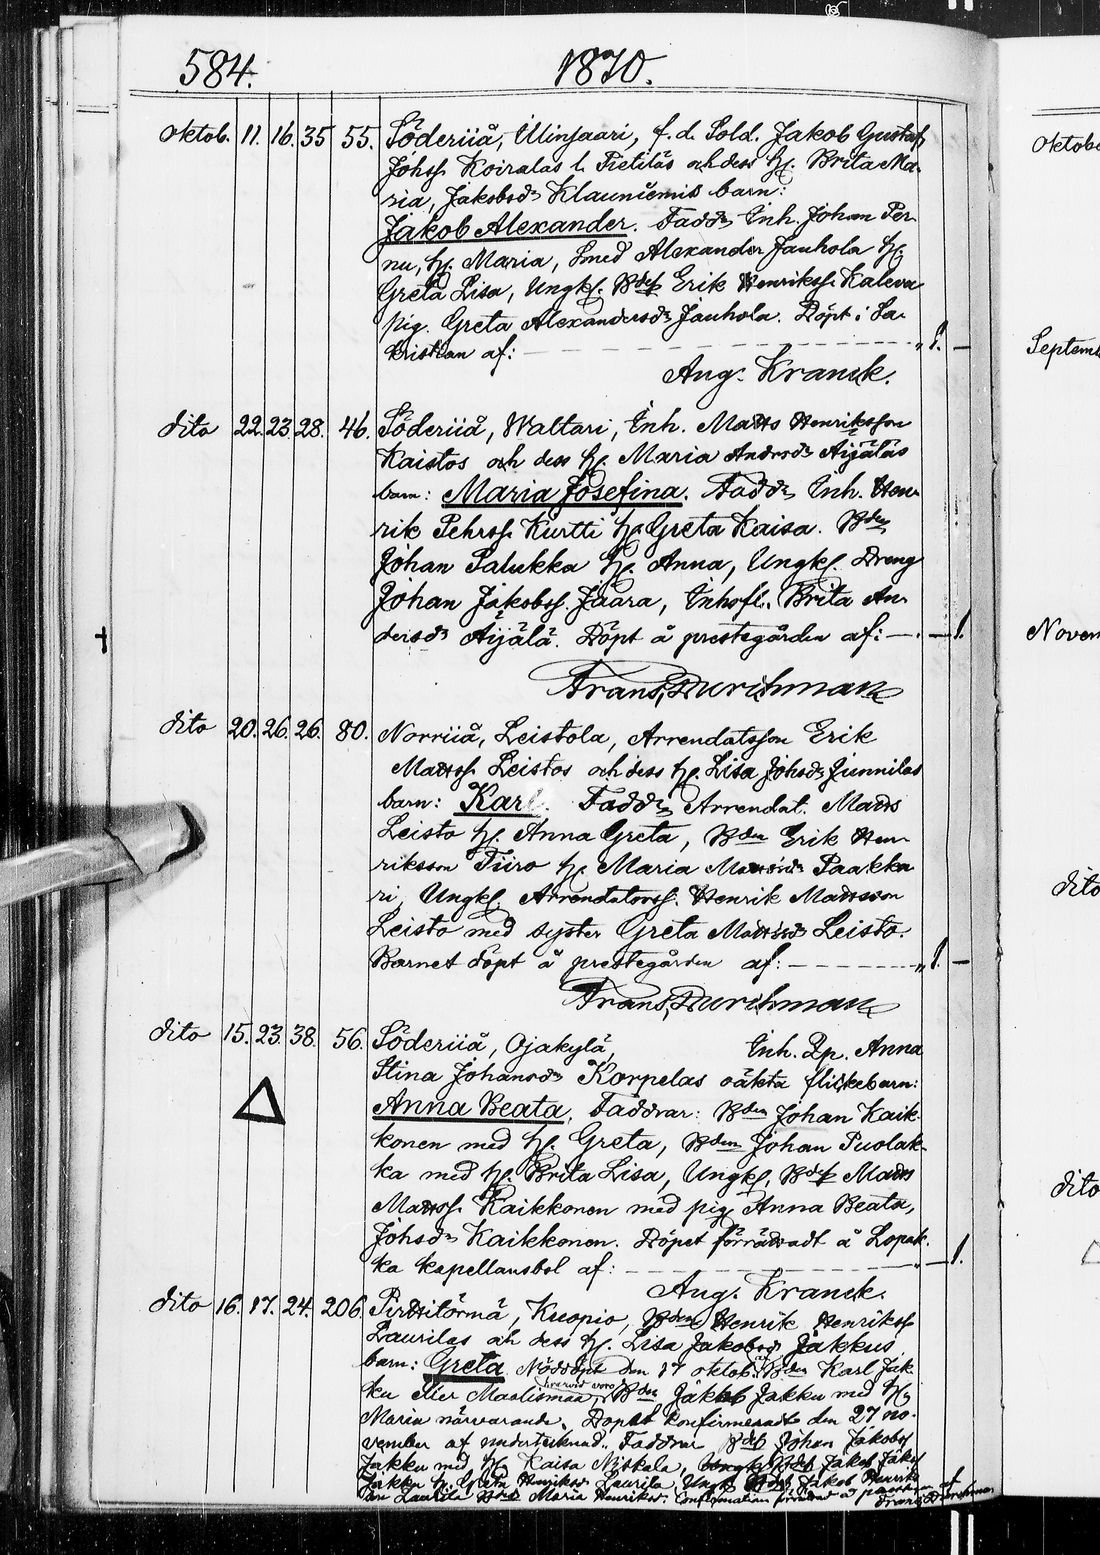 584. 1870.
Oktob. 11. 16. 35 55. Söderiiå, Ulinjaari, f.d. Sold. Jakob Gustaf
Johss. Koiralas l. Pietiläs och dess H. Brita Ma-
ria, Jakobsdr Klauniemis barn:
Jakob Alexander. Faddr Inh. Johan Per
nu, H. Maria, Smed Alexander Jauhola H.
Greta Lisa, Ungk. Bds Erik Henrikss. Kaleva
pig. Greta Alexandersdr Jauhola. Döpt i Sa-
kristian af: 1.
Aug. Kranck.
dito 22. 23. 28. 46. Söderiiå, Waltari, Inh. Matts Henriksson
Kaistos och dess H. Maria Andersdr Äijäläs
barn: Maria Josefina. Faddr Inh. Hen-
rik Pehrss. Kurtti H. Greta Kaisa. Bden
Johan Palukka H. Anna, Ungk. Dreng
Johan Jakobss. Jaara, Inhsfl. Brita An-
dersdr Äijälä. Döpt å prestegården af: 1.
Frans Durchman
dito 20. 26. 26. 80. Norriiå, Leistola, Arrendatsson Erik
Mattss. Leistos och dess H. Lisa Johsdr Junnilas
barn: Karl. Faddr Arrendat. Matts
Leisto H. Anna Greta, Bden Erik Hen-
riksson Tiiro H. Maria Mattsdr Paakka
ri, Ungk. Arrendatorss. Henrik Mattsson
Leisto med syster Greta Mattsdr Leisto.
Barnet döpt å prestegården af: 1.
Frans Durchman
dito 15. 23. 38. 56. Söderiiå, Ojakylä, Inh. Qp. Anna
Stina Johansdr Korpelas oäkta flickebarn:
Anna Beata. Faddrar: Bden Johan Kaik-
konen med H. Greta, Bden Johan Puolak-
ka med H. Brita Lisa, Ungk. Bds Matts
Mattss. Kaikkonen med pig. Anna Beata,
Johsdr Kaikkonen. Döpet förrättadt å Lopak-
ka kapellansbol af: 1.
Aug. Kranck.
dito 16. 17. 24. 206. Pirttitörmä, Kuopio, Bden Henrik Henrikss
Laurilas och dess H. Lisa Jakobsdr Jäkkus
barn: Greta. Nöddöpt den 17 oktob. af Bden Karl Jak-
ku eller Maalismaa, hvarvid voro Bden Jakob Jakku med H.
Maria närvarande. Dopet konfirmeradt den 27 no-
vember af undertecknad. Faddrar Bds Johan Jakobss
Jakku med H. Kaisa Niskala, Jakob
Jakku H. Greta Henriksdr Laurila, Ungk Bds Jakob Henriks
son Laurila Maria Henriksdr. Confirmation förrättad å af
Frans Durchman